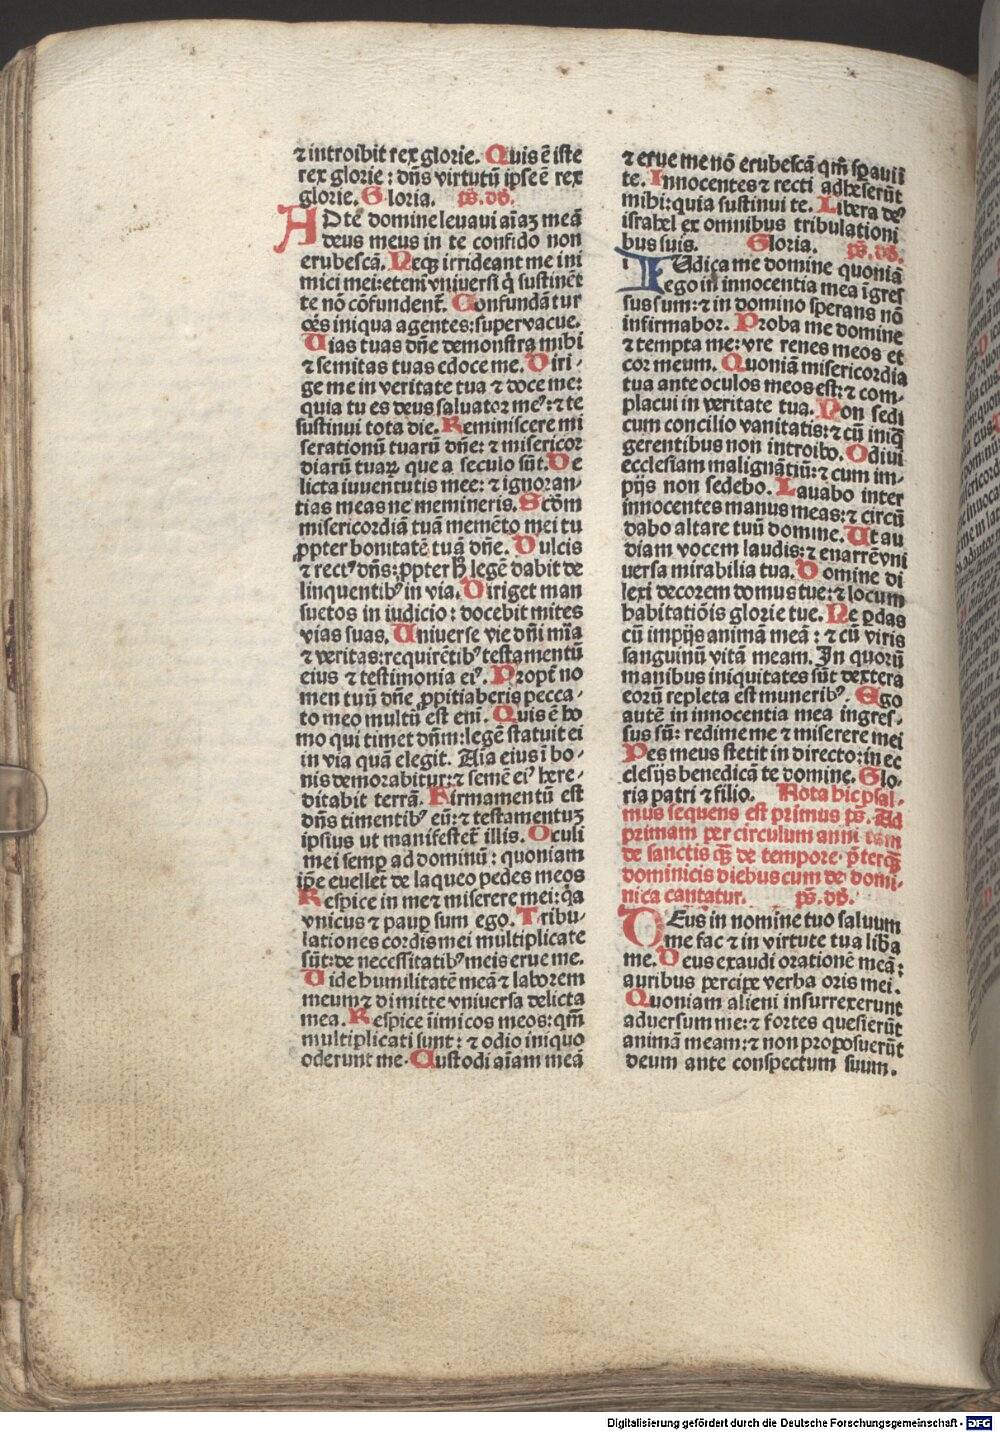 ⁊ introibit rex glorie. Quis ē iste
rex glorie : dn̄s virtutū ip̄e ē rex
glorie. Gloria. ps̄. dd̄.
AD te domine leuaui aīaꝫ meā
deus meus in te confido non
erubescā. Neqꝫ irrideant me ini
mici mei: etenī vniuersi q̇ sustinēt
te nō cōfundent̄. Confundātur
oēs iniqua agentes: superuacue.
Uias tuas dn̄e demonstra mihi
⁊ semitas tuas edoce me. Diri-
ge me in veritate tua ⁊ doce me:
quia tu es deus saluator meꝰ: ⁊ te
sustinui tota die. Reminiscere mi
serationū tuarū dn̄e: ⁊ misericor
diarū tuaꝝ que a seculo sūt. De
licta iuuentutis mee: ⁊ ignoran-
tias meas ne memineris. Scd̄m
misericordiā tuā memēto mei tu
ꝓpter bonitatē tuā dn̄e. Dulcis
⁊ rectꝰ dn̄s: ꝓpter h̄ legē dabit de
linquentibꝰ in via. Diriget man
suetos in iudicio : docebit mites
vias suas. Uniuerse vie dn̄i mīa
⁊ veritas: requirētibꝰ testamentū
eius ⁊ testimonia eiꝰ. Propt̄ no
men tuū dn̄e ꝓpitiaberis pecca-
to meo multū est enī. Quis ē ho
mo qui timet dn̄m: legē statuit ei
in via quā elegit. Aīa eius ī bo-
nis demorabitur: ⁊ semē eiꝰ here-
ditabit terrā. Firmamentū est
dn̄s timentibꝰ eū: ⁊ testamentuꝫ
ipsius ut manifestet̄ illis. Oculi
mei semꝑ ad dominū : quoniam
ip̄e euellet de laqueo pedes meos
Respice in me ⁊ miserere mei: q̇a
vnicus ⁊ pauꝑ sum ego. Tribu-
lationes cordis mei multiplicate
sūt: de necessitatibꝰ meis erue me.
Uide humilitatē meā ⁊ laborem
meum ⁊ dimitte vniuersa delicta
mea. Respice īimicos meos: qm̄
multiplicati sunt : ⁊ odio iniquo
oderunt me. Custodi aīam meā
⁊ erue me nō erubescā qm̄ sꝑaui ī
te. Innocentes ⁊ recti adheserūt
mihi: quia sustinui te. Libera deꝰ
israhel ex omnibus tribulationi
bus suis. Gloria. ps̄. dd̄.
IUdica me domine quoniā
ego in innocentia mea īgres
sus sum: ⁊ in domino sperans nō
infirmabor. Proba me domine
⁊ tempta me: vre renes meos et
cor meum. Quoniā misericordia
tua ante oculos meos est: ⁊ com-
placui in veritate tua. Non sedi
cum concilio vanitatis: ⁊ cū iniq̄
gerentibus non introibo. Odiui
ecclesiam malignātiū: ⁊ cum im-
pijs non sedebo. Lauabo inter
innocentes manus meas: ⁊ circū
dabo altare tuū domine. Ut au
diam vocem laudis: ⁊ enarrē vni
uersa mirabilia tua. Domine di
lexi decorem domus tue: ⁊ locum
habitatiōis glorie tue. Ne ꝑdas
cū impijs animā meā : ⁊ cū viris
sanguinū vitā meam. In quorū
manibus iniquitates sūt dextera
eorū repleta est muneribꝰ. Ego
autē in innocentia mea ingres-
sus sū: redime me ⁊ miserere mei
Pes meus stetit in directo: in ec
clesijs benedicā te domine. Glo-
ria patri ⁊ filio. Nota hic psal-
mus sequens est primus ps̄. Ad
primam per circulum anni tam
de sanctis qꝫ de tempore p̄terqꝫ
dominicis diebus cum de domi-
nica cantatur. ps̄. dd̄.
DEus in nomine tuo saluum
me fac ⁊ in virtute tua liƀa
me. Deus exaudi orationē meā :
auribus percipe verba oris mei.
Quoniam alieni insurrexerunt
aduersum me: ⁊ fortes quesierūt
animā meam: ⁊ non proposuerūt
deum ante conspectum suum.
Digitalisierung gefördert durch die Deutsche Forschungsgemeinschaft - DFG